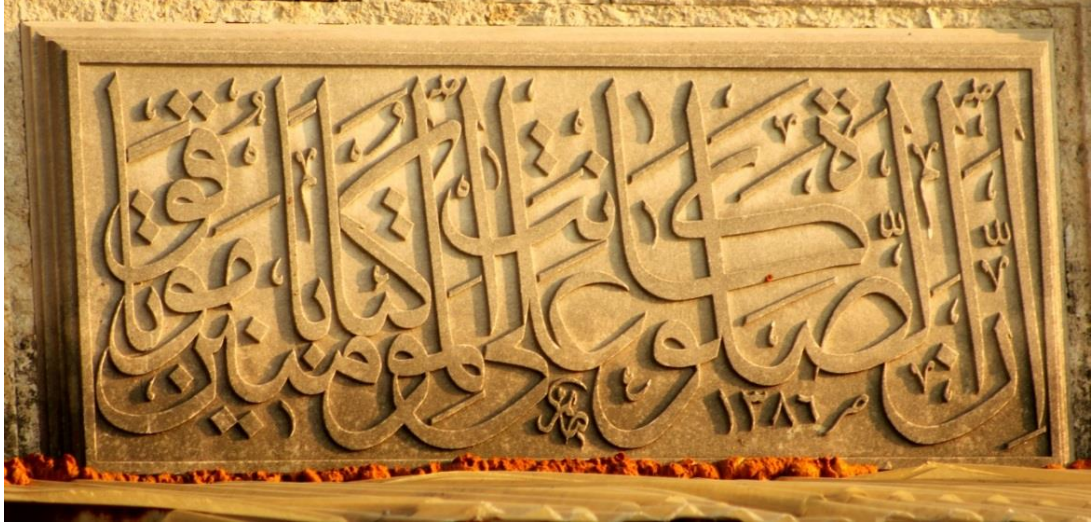 إِنَّ الصَّلَوٰةَ كَانَتْ عَلَى الْمُؤْمِنِينَ كِتَابًا مَوْقُوتًا
١٣٨٦